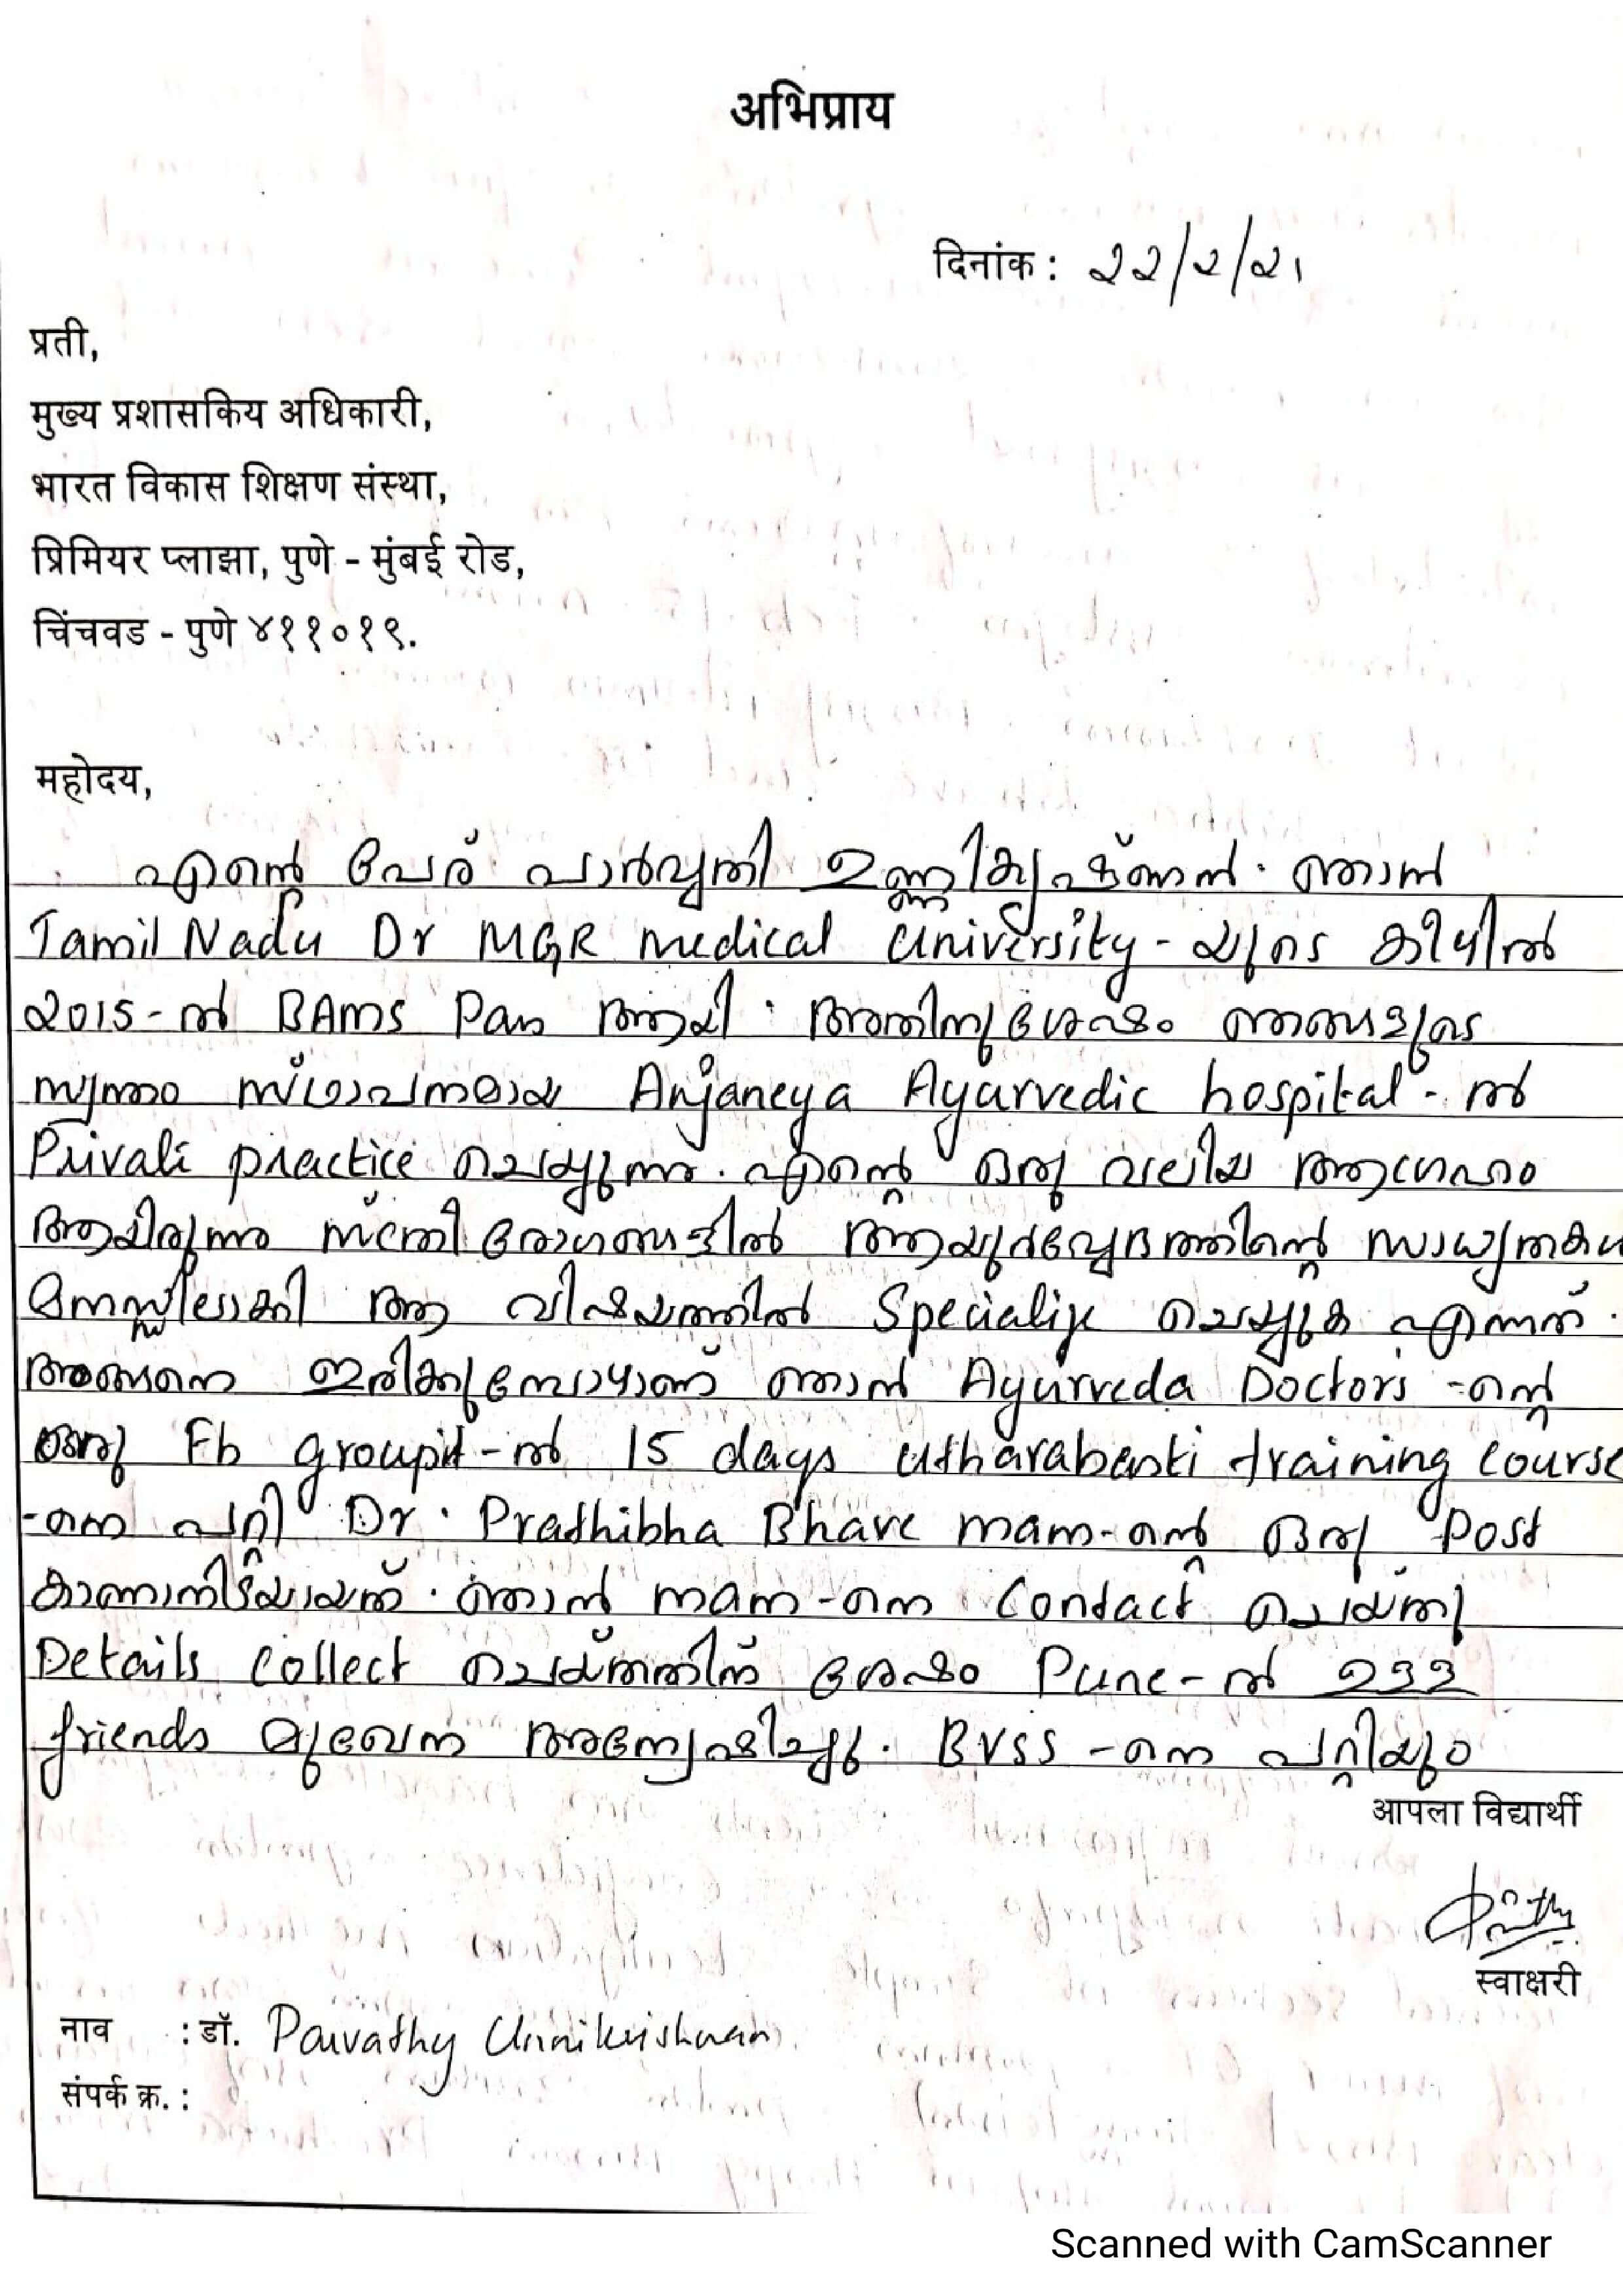 अभिप्राय
दिनांक : 22/2/21
प्रती,
मुख्य प्रशासकिय अधिकारी,
भारत विकास शिक्षण संस्था,
प्रिमियर प्लाझा, पुणे - मुंबई रोड,
चिंचवड - पुणे ४११०१९.
महोदय,
എന്റെ പേര് പാർവ്വതി ഉണ്ണികൃഷ്ണൻ. ഞാൻ
Tamil Nadu Dr MGR Medical University - യുടെ കീഴിൽ
2015-ൽ BAMS Pass ആയി. അതിനുശേഷം ഞങ്ങളുടെ
സ്വന്തം സ്ഥാപനമായ Anjaneya Ayurvedic hospital - ൽ
Private practice ചെയ്യുന്നു. എന്റെ ഒരു വലിയ ആഗ്രഹം
ആയിരുന്നു സ്ത്രീ രോഗങ്ങളിൽ ആയുർവ്വേദത്തിന്റെ സാധ്യതകൾ
മനസ്സിലാക്കി ആ വിഷയത്തിൽ Specialize ചെയ്യുക എന്നത്.
അങ്ങനെ ഇരിക്കുമ്പോഴാണ് ഞാൻ Ayurveda Doctors -ന്റെ
ഒരു Fb group-ൽ 15 days utharabasti training course
-നെ പറ്റി Dr. Prathibha Bhave mam-ന്റെ ഒരു Post
കാണാനിടയായത്. ഞാൻ mam-നെ Contact ചെയ്തു
Details collect ചെയ്തതിന് ശേഷം Pune-ൽ ഉള്ള
friends മുഖേന അന്വേഷിച്ചു. BVSS -നെ പറ്റിയും
आपला विद्यार्थी
स्वाक्षरी
नाव : डॉ. Parvathy Unnikrishnan.
संपर्क क्र. :
Scanned with CamScanner